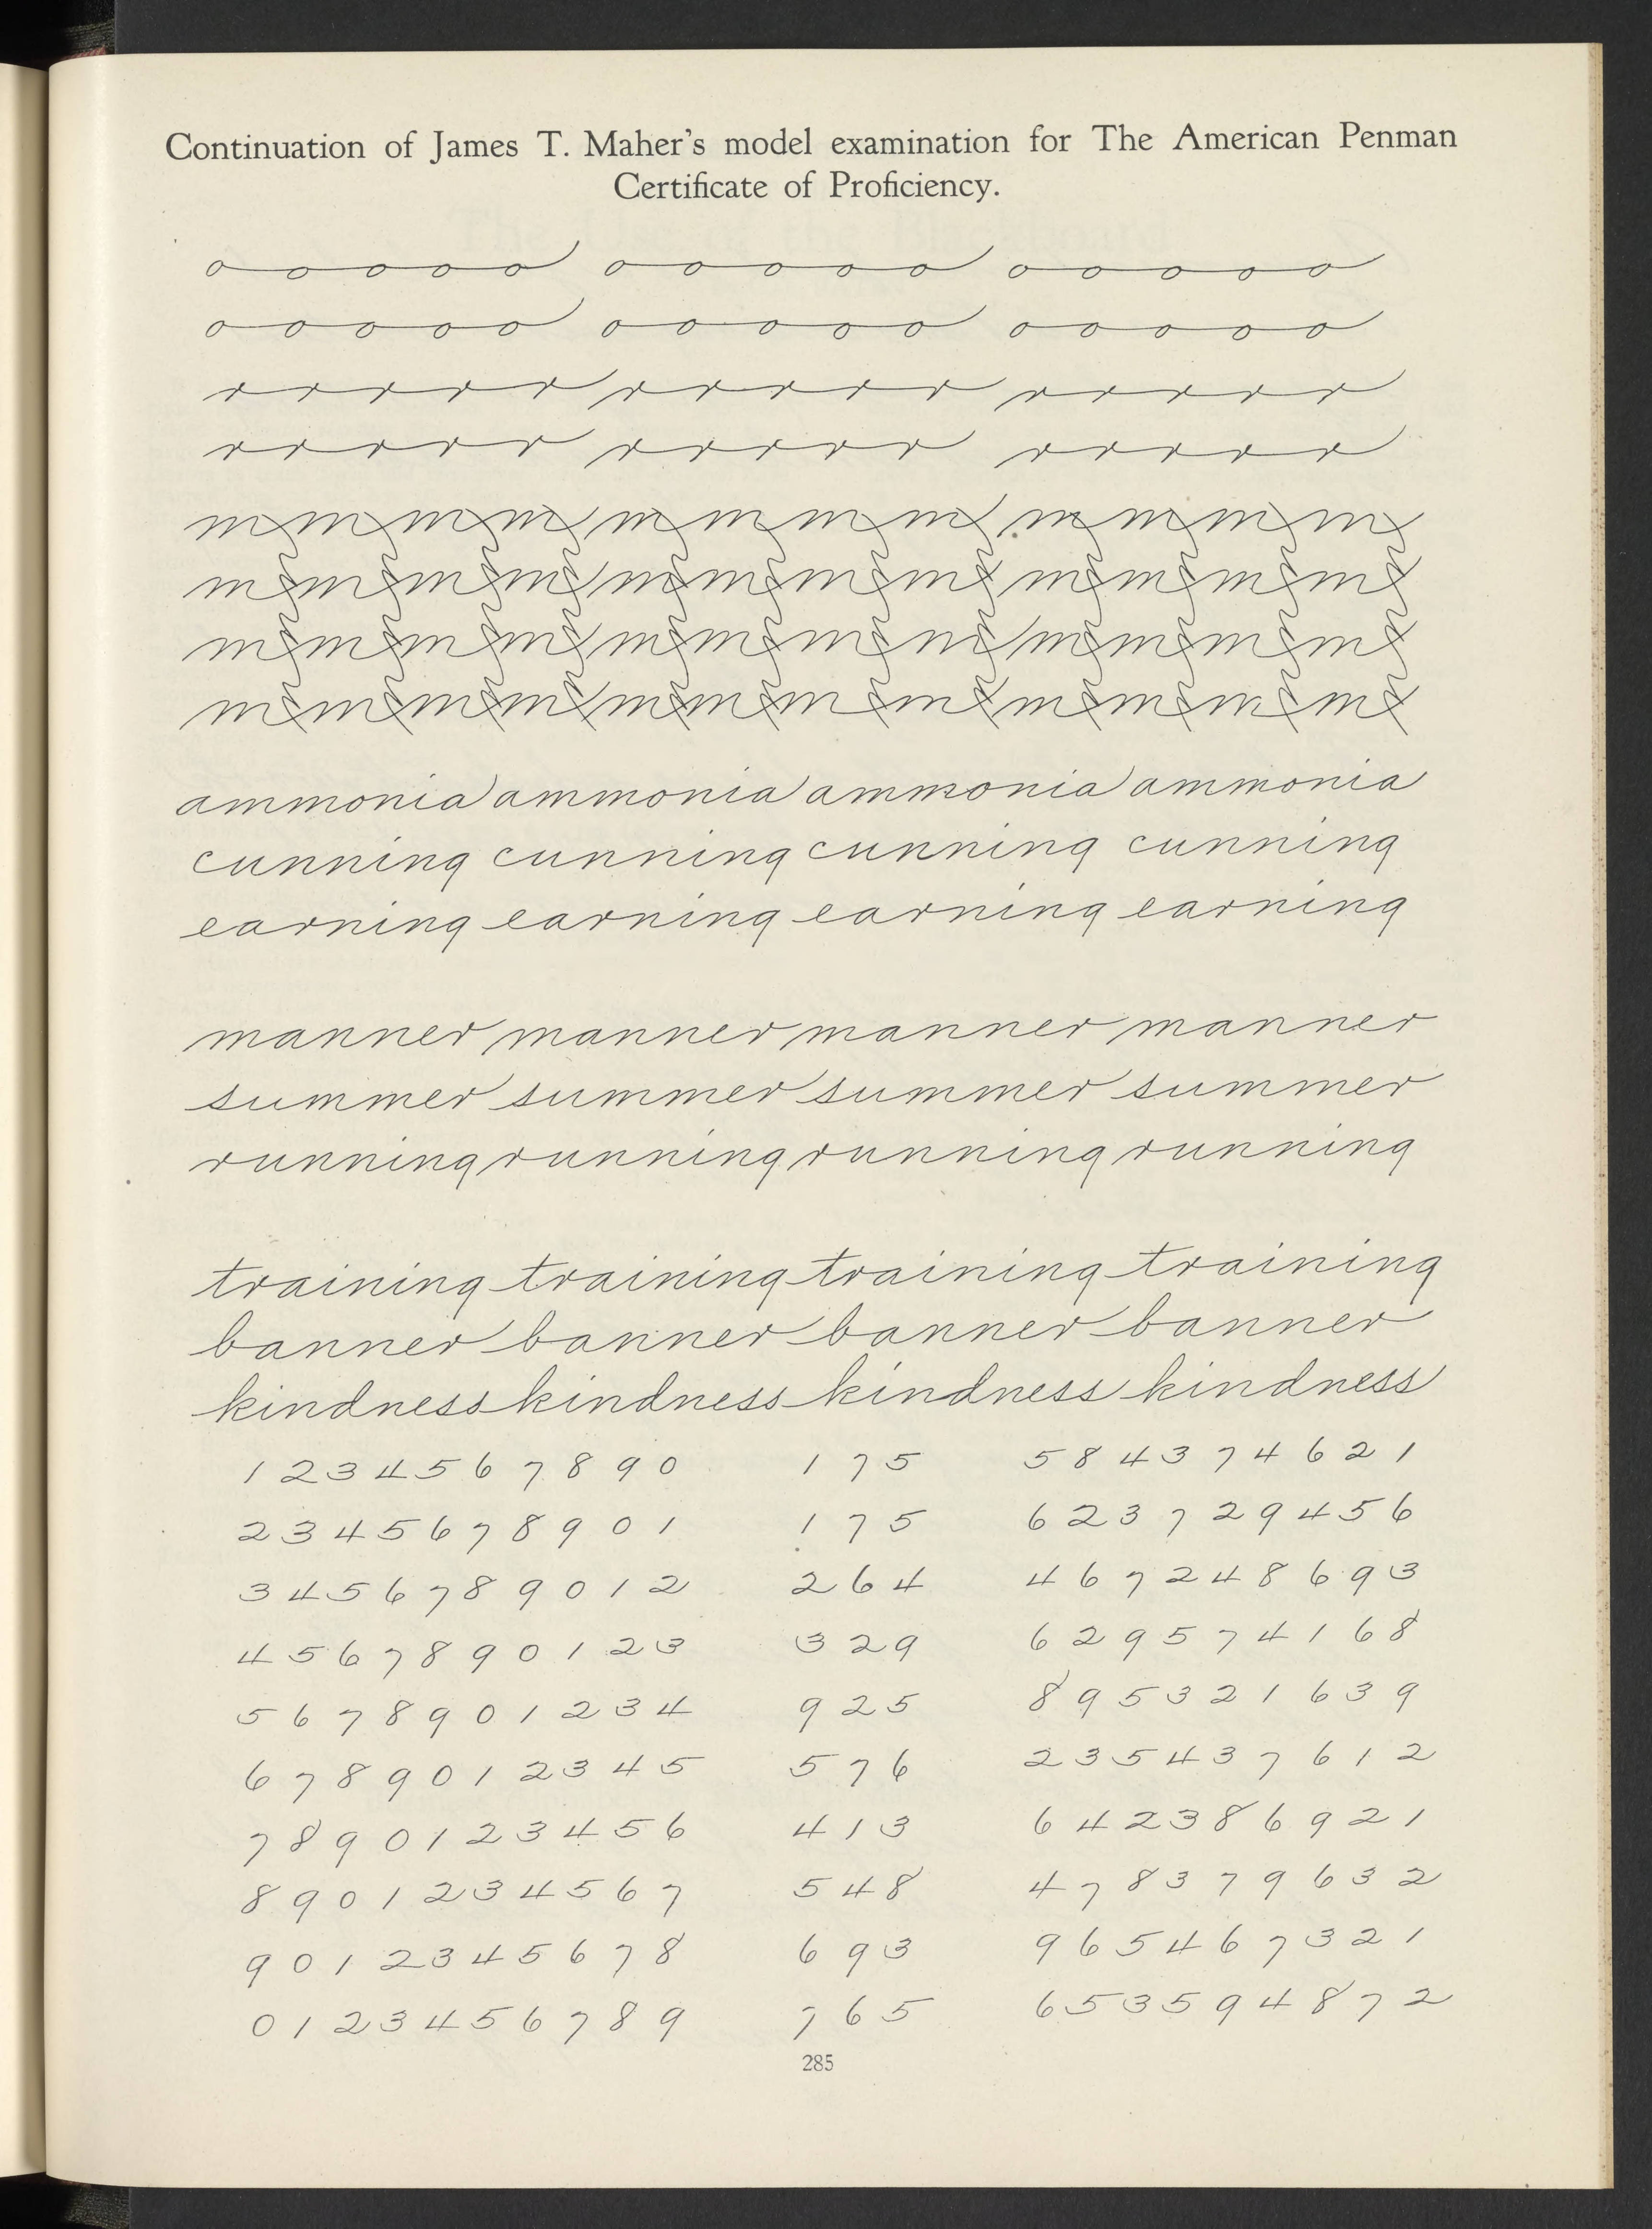 Continuation of James T. Maher's model examination for The American Penman
Certificate of Proficiency.
o o o o o o o o o o o o o o o
o o o o o o o o o o o o o o o
r r r r r r r r r r r r r r r
r r r r r r r r r r r r r r r
m m m m m m m m m m m m
m m m m m m m m m m m m
m m m m m m m m m m m m
m m m m m m m m m m m m
ammonia ammonia ammonia ammonia
cunning cunning cunning cunning
earning earning earning earning
manner manner manner manner
summer summer summer summer
running running running running
training training training training
banner banner banner banner
kindness kindness kindness kindness
1 2 3 4 5 6 7 8 9 0 1 7 5 5 8 4 3 7 4 6 2 1
2 3 4 5 6 7 8 9 0 1 1 7 5 6 2 3 7 2 9 4 5 6
3 4 5 6 7 8 9 0 1 2 2 6 4 4 6 7 2 4 8 6 9 3
4 5 6 7 8 9 0 1 2 3 3 2 9 6 2 9 5 7 4 1 6 8
5 6 7 8 9 0 1 2 3 4 9 2 5 8 9 5 3 2 1 6 3 9
6 7 8 9 0 1 2 3 4 5 5 7 6 2 3 5 4 3 7 6 1 2
7 8 9 0 1 2 3 4 5 6 4 1 3 6 4 2 3 8 6 9 2 1
8 9 0 1 2 3 4 5 6 7 5 4 8 4 7 8 3 7 9 6 3 2
9 0 1 2 3 4 5 6 7 8 6 9 3 9 6 5 4 6 7 3 2 1
0 1 2 3 4 5 6 7 8 9 7 6 5 6 5 3 5 9 4 8 7 2
285